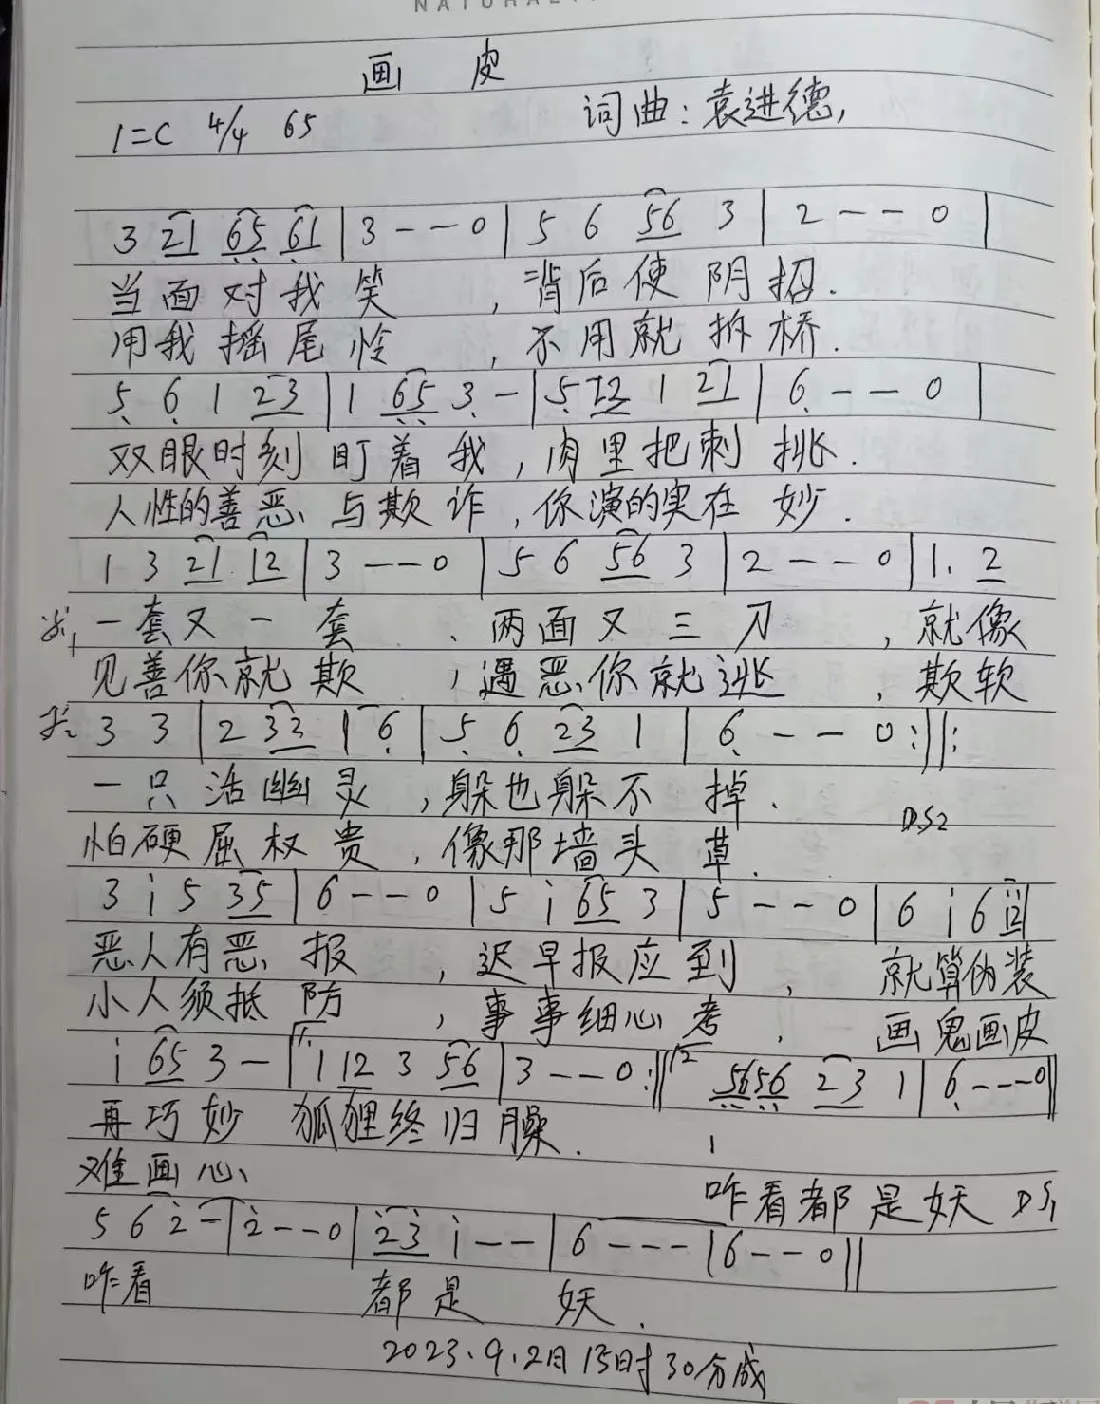 画 皮
1=C 4/4 65 词曲:袁进德,
3 21 65 61 | 3 - - 0 | 5 6 56 3 | 2 - - 0 |
当面对我笑 ,背后使阴招.
用我摇尾怜 ,不用就拆桥.
5 6 1 23 | 1 65 3 - | 5 12 1 21 | 6 - - 0 |
双眼时刻盯着我,肉里把刺挑.
人性的善恶与欺诈,你演的实在妙.
1 3 21 12 | 3 - - 0 | 5 6 56 3 | 2 - - 0 | 1. 2
一套又一套 、两面又三刀 ,就像
见善你就欺 ,遇恶你就逃 ,欺软
3 3 | 2 33 1 6 | 5 6 23 1 | 6 - - 0 :||:
一只活幽灵 ,躲也躲不掉.
D.S2
怕硬屈权贵 ,像那墙头草.
3 i 5 35 | 6 - - 0 | 5 i 65 3 | 5 - - 0 | 6 i 6 i2 |
恶人有恶报 ,迟早报应到 ,就算伪装
小人须抵防 ,事事细心考 ,画鬼画皮
i 65 3 - | 1. 1 12 3 56 | 3 - - 0 :|| 2 5656 23 1 | 6 - - - 0 ||
再巧妙 狐狸终归臊.
难画心 咋看都是妖 DS1
5 6 2 - | 2 - - 0 | 23 i - - | 6 - - - | 6 - - 0 ||
咋看 都是 妖.
2023.9.2日15时30分成